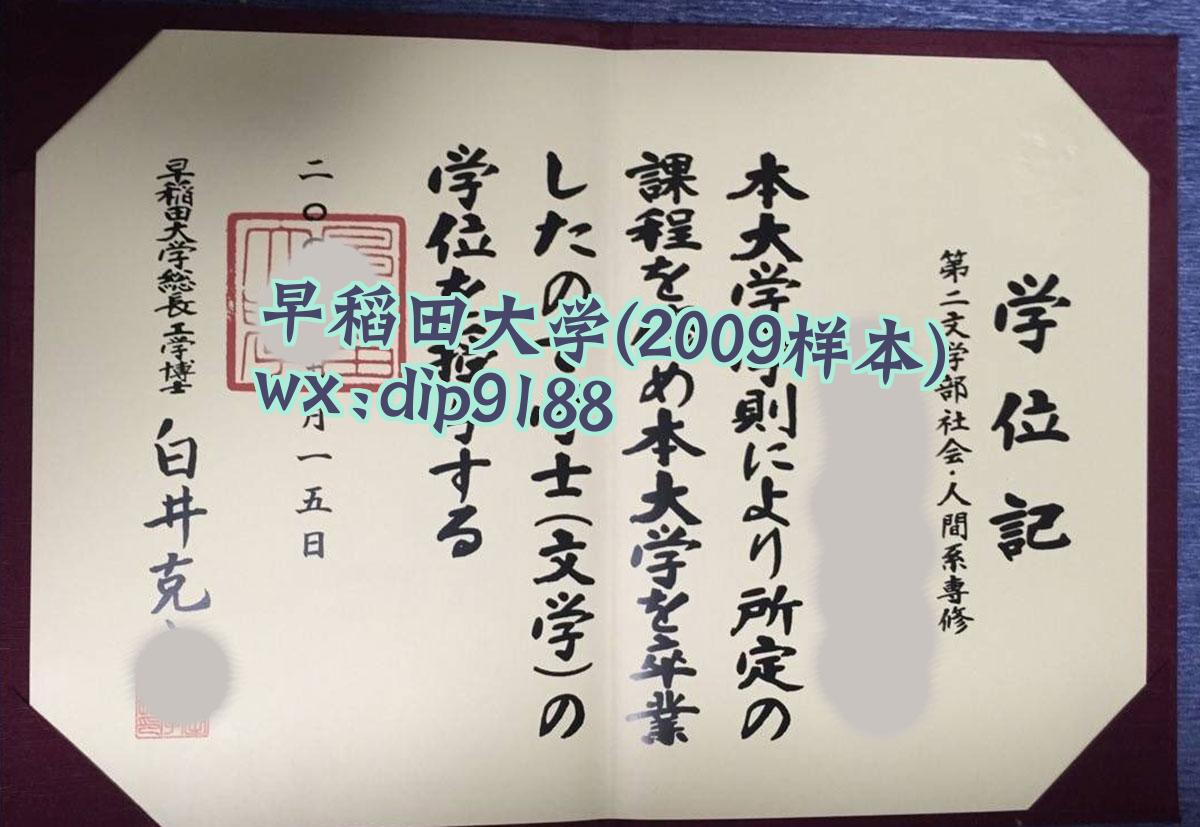 学位記
第二文学部社会・人間系専修
本大学学則により所定の
課程を め本大学を卒業
したので 士(文学)の
学位を授与する
二〇 月一五日
早稲田大学総長 工学博士 白井克
早稲田大学(2009样本)
wx:dip9188